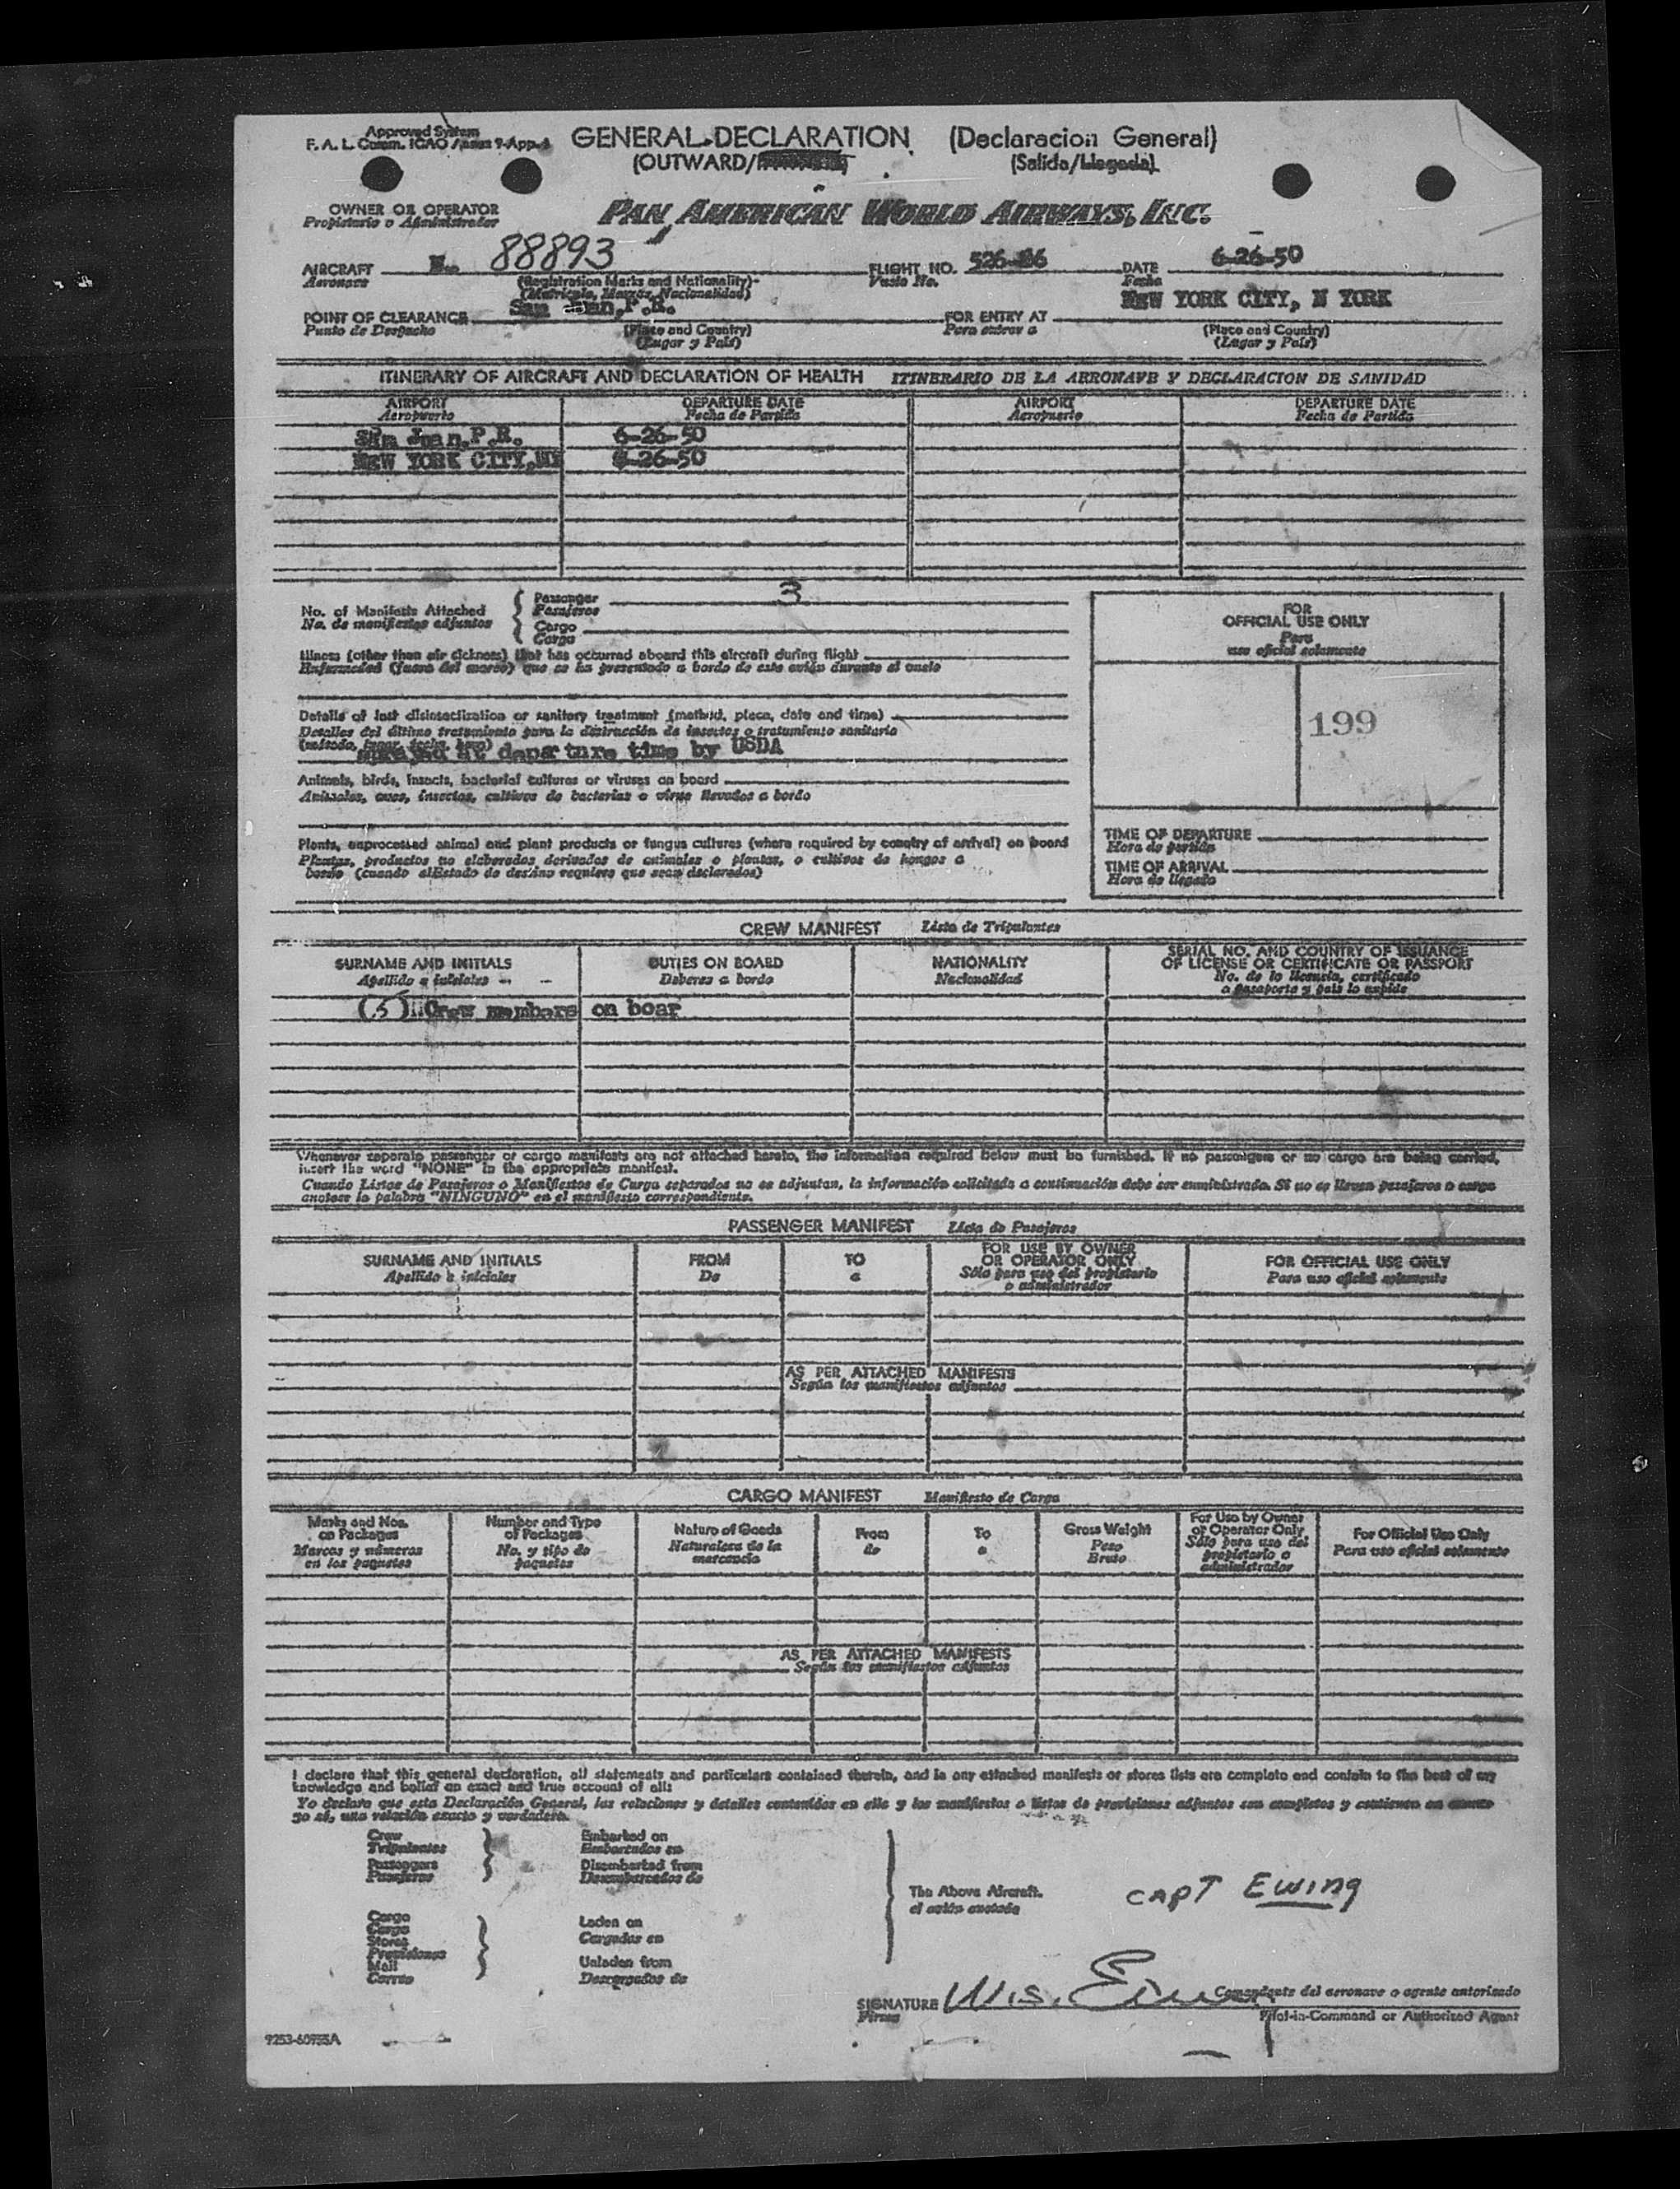 Approved System
F. A. L. Comm. ICAO Annex 9-App. A
GENERAL DECLARATION (Declaracion General)
(OUTWARD/ (Salida/Llegada)
OWNER OR OPERATOR
Propietario o Administrador
PAN AMERICAN WORLD AIRWAYS, INC.
AIRCRAFT N 88893 FLIGHT NO. 526- DATE 6-26-50
Aeronave (Registration Marks and Nationality) Vuelo No. Fecha
(Matrícula, Marcas, Nacionalidad)
POINT OF CLEARANCE San Juan, P.R. FOR ENTRY AT NEW YORK CITY, N YORK
Punto de Despacho (Place and Country) Para entrar a (Place and Country)
(Lugar y País) (Lugar y País)
ITINERARY OF AIRCRAFT AND DECLARATION OF HEALTH ITINERARIO DE LA AERONAVE Y DECLARACION DE SANIDAD
AIRPORT DEPARTURE DATE AIRPORT DEPARTURE DATE
Aeropuerto Fecha de Partida Aeropuerto Fecha de Partida
San Juan, P.R. 6-26-50
NEW YORK CITY, NY 6-26-50
No. of Manifests Attached
No. de manifiestos adjuntos
Passenger 3
Pasajeros
Cargo
Carga
Illness (other than air sickness) that has occurred aboard this aircraft during flight
Enfermedad (fuera del mareo) que se ha presentado a bordo de este avión durante el vuelo
Details of last disinsectization or sanitary treatment (method, place, date and time)
Detalles del último tratamiento para la destrucción de insectos o tratamiento sanitario
(método, lugar, fecha, hora)
sprayed at departure time by USDA
Animals, birds, insects, bacterial cultures or viruses on board
Animales, aves, insectos, cultivos de bacterias o virus llevados a bordo
Plants, unprocessed animal and plant products or fungus cultures (where required by country of arrival) on board
Plantas, productos no elaborados derivados de animales o plantas, o cultivos de hongos a
bordo (cuando el Estado de destino requiere que sean declarados)
FOR
OFFICIAL USE ONLY
Para
uso oficial solamente
199
TIME OF DEPARTURE
Hora de partida
TIME OF ARRIVAL
Hora de llegada
CREW MANIFEST Lista de Tripulantes
SURNAME AND INITIALS DUTIES ON BOARD NATIONALITY SERIAL NO. AND COUNTRY OF ISSUANCE
OF LICENSE OR CERTIFICATE OR PASSPORT
Apellido e iniciales Deberes a bordo Nacionalidad No. de la licencia, certificado
o pasaporte y país lo expide
(5) Crew members on boar
Whenever separate passenger or cargo manifests are not attached hereto, the information required below must be furnished. If no passengers or no cargo are being carried,
insert the word "NONE" in the appropriate manifest.
Cuando Listas de Pasajeros o Manifiestos de Carga separados no se adjuntan, la información solicitada a continuación debe ser suministrada. Si no se llevan pasajeros o carga
anotese la palabra "NINGUNO" en el manifiesto correspondiente.
PASSENGER MANIFEST Lista de Pasajeros
SURNAME AND INITIALS FROM TO FOR USE BY OWNER
OR OPERATOR ONLY FOR OFFICIAL USE ONLY
Apellido e iniciales De a Sólo para uso del propietario
o administrador Para uso oficial solamente
AS PER ATTACHED MANIFESTS
Según los manifiestos adjuntos
CARGO MANIFEST Manifiesto de Carga
Marks and Nos.
on Packages
Marcas y números
en los paquetes
Number and Type
of Packages
No. y tipo de
paquetes
Nature of Goods
Naturaleza de la
mercancía
From
de
To
a
Gross Weight
Peso
Bruto
For Use by Owner
or Operator Only
Sólo para uso del
propietario o
administrador
For Official Use Only
Para uso oficial solamente
AS PER ATTACHED MANIFESTS
Según los manifiestos adjuntos
I declare that this general declaration, all statements and particulars contained therein, and in any attached manifests or stores lists are complete and contain to the best of my
knowledge and belief an exact and true account of all:
Yo declaro que esta Declaración General, las relaciones y detalles contenidos en ella y los manifiestos o listas de provisiones adjuntos son completos y contienen en cuanto
yo sé, una relación exacta y verdadera.
Crew
Tripulantes
Passengers
Pasajeros
Embarked on
Embarcados en
Disembarked from
Desembarcados de
Cargo
Carga
Stores
Provisiones
Mail
Correo
Laden on
Cargados en
Unladen from
Descargados de
The Above Aircraft.
el avión anotado
CAPT EWING
SIGNATURE W.S. Ewing
Firma
Comandante del aeronave o agente autorizado
Pilot-in-Command or Authorized Agent
9253-60955A